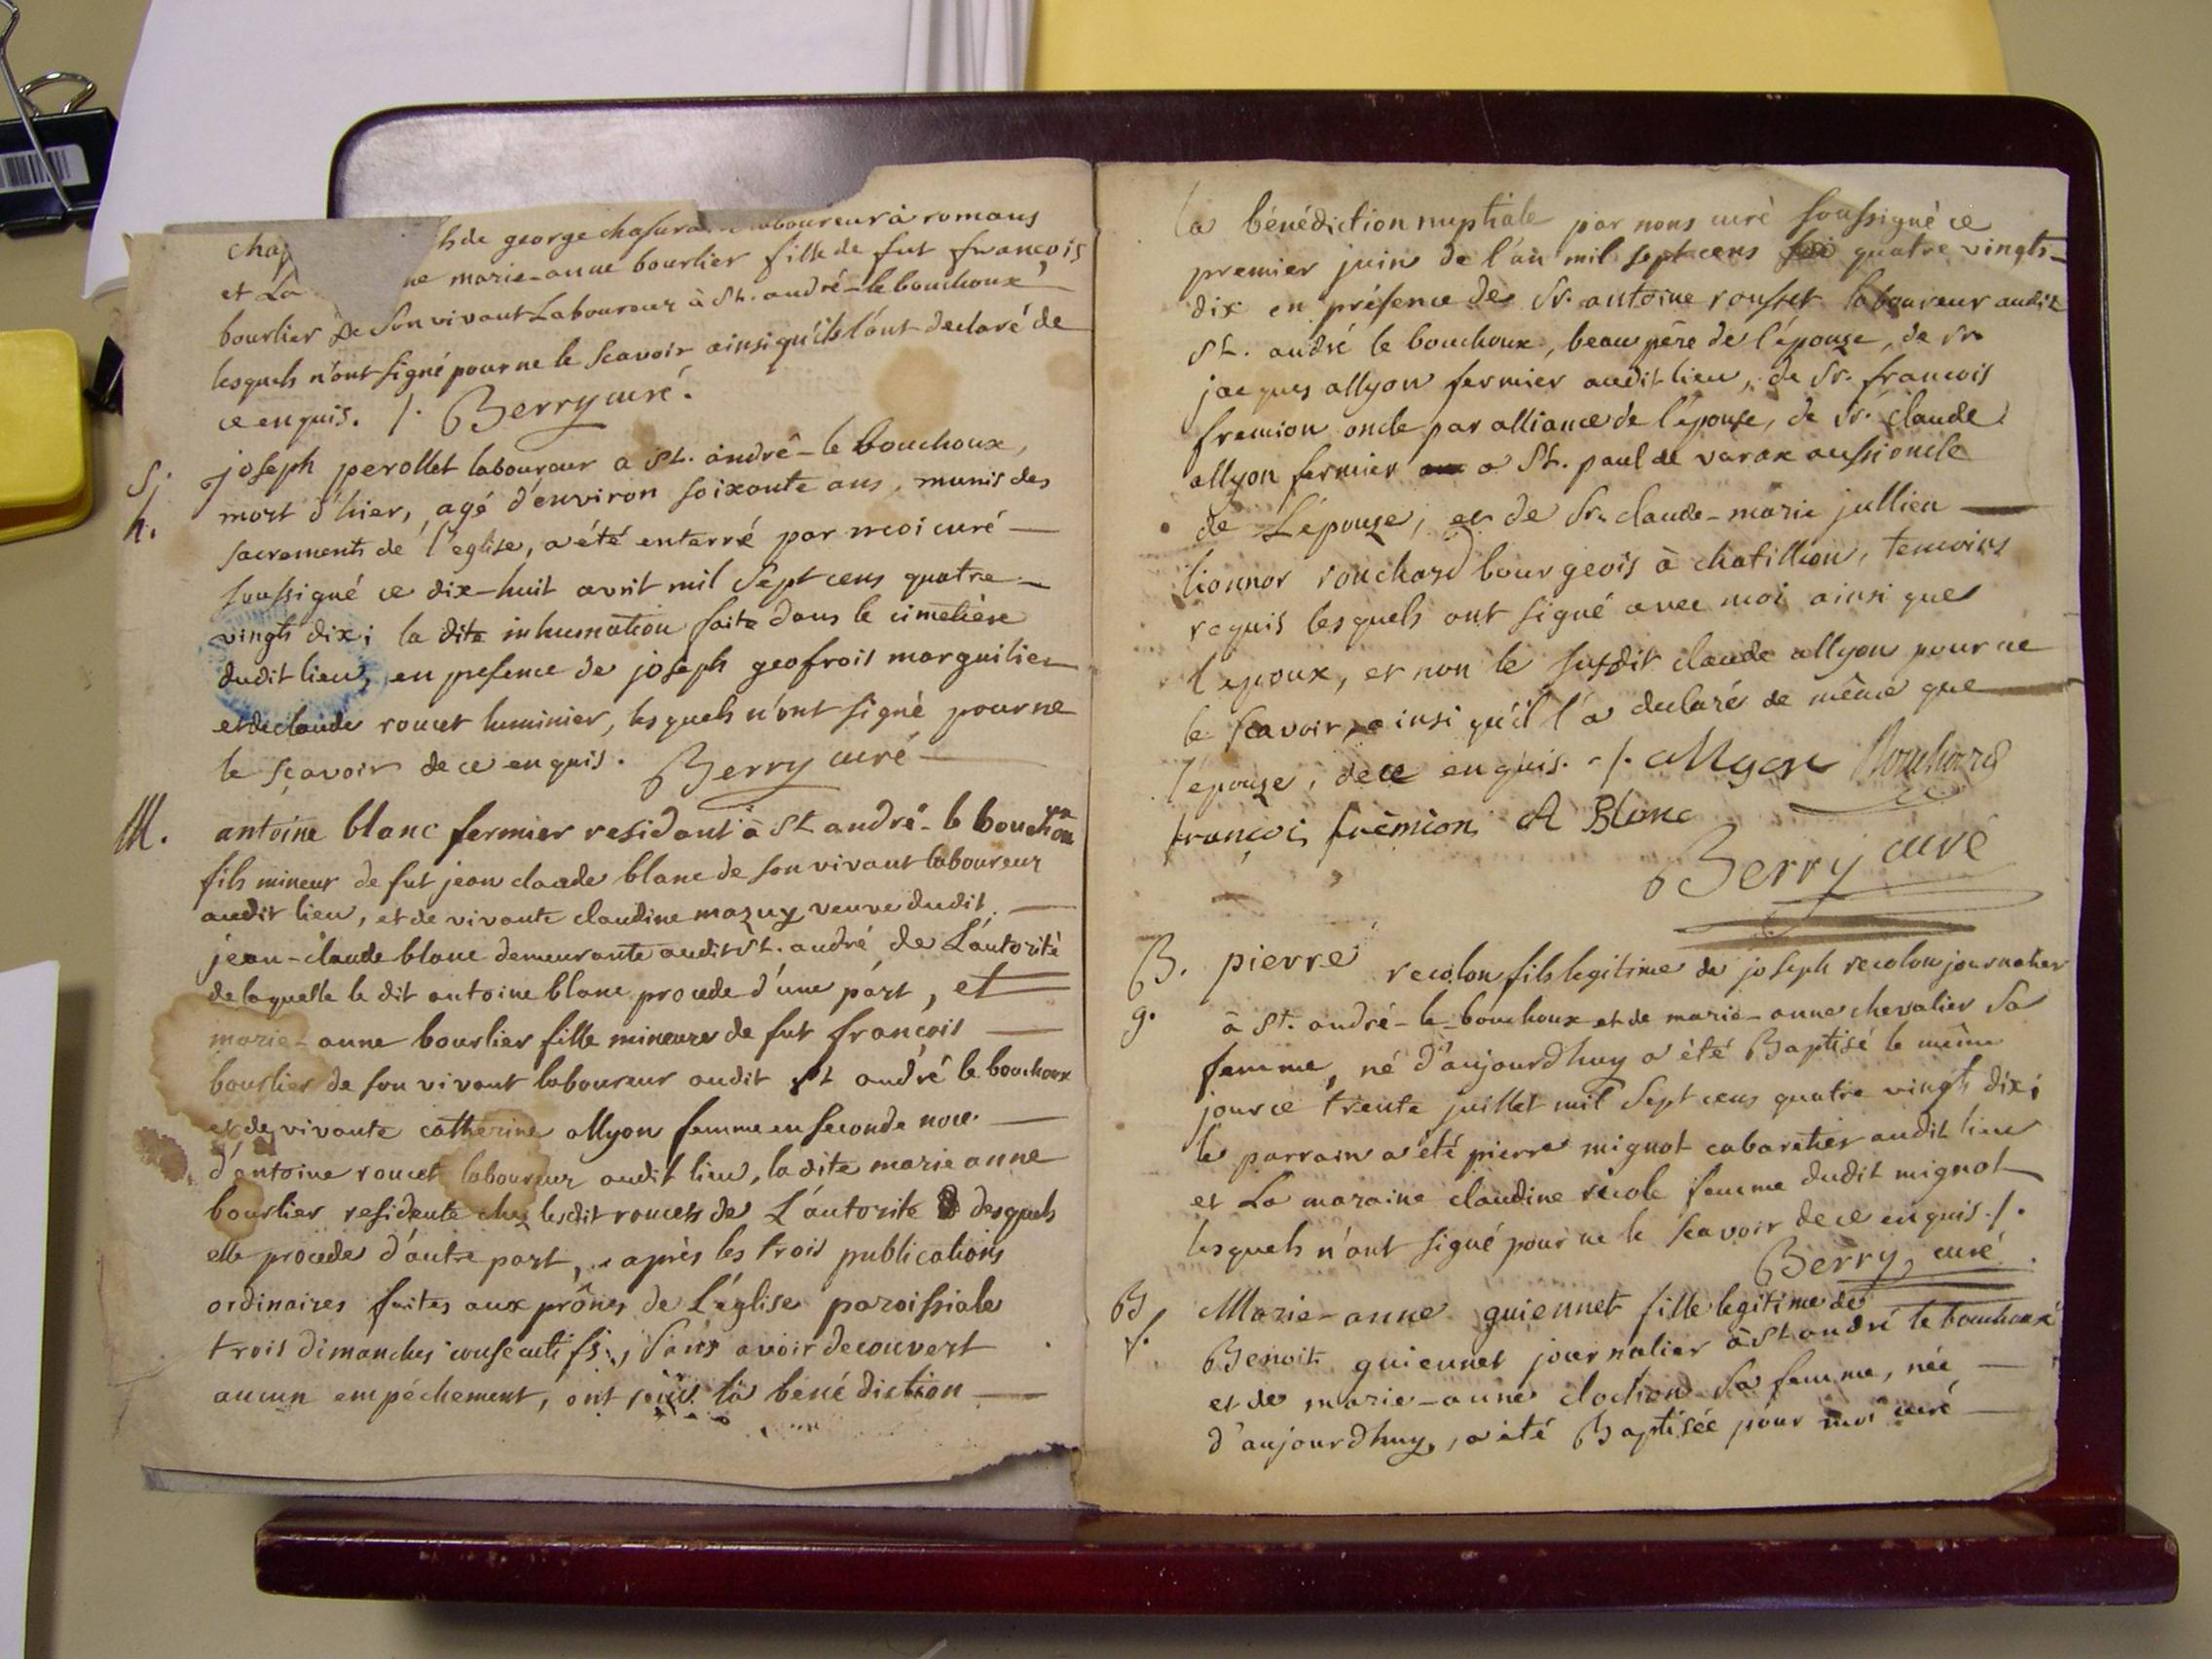 chap
de george chasura laboureur à romans
et La marie-anne bourlier fille de fut francois
bourlier De Son vivant Laboureur à St. andré-le bouchoux
lesquels n'ont signé pour ne le scavoir ainsi qu'ils l'ont declaré de
ce enquis. /. Berry curé.
S. joseph perollet laboureur a St. andrê-le bouchoux,
h. mort d'hier, agé d'environ soixante ans, munis des
sacrements de l'eglise, a été enterré par moi curé
soussigné ce dix-huit avril mil Sept cens quatre
vingts dix; la dite inhumation faite dans le cimetière
dudit lieu, en presence de joseph geofroit marguilier
et de claude roucet luminier, lesquels n'ont signé pour ne
le sçavoir de ce enquis. Berry curé
M. antoine blanc fermier residant à St andré-le bouchoux
fils mineur de fut jean claude blanc de son vivant laboureur
audit lieu, et de vivante claudine mazuy veuve dudit
jean-claude blanc demeurante audit St. andré, de L'autorité
de laquelle le dit antoine blanc procede d'une part, et
marie-anne bourlier fille mineure de fut françois
bourlier de son vivant laboureur audit St andré le bouchoux
et de vivante catherine allyon femme en seconde noce
d'antoine roucet laboureur audit lieu, ladite marie anne
bourlier residente chez lesdit roucets de L'autorité desquels
elle procede d'autre part, après les trois publications
ordinaires faites aux prônes de L'église paroissiale
trois dimanches consecutifs, sans avoir decouvert
aucun empéchement, ont reçu la bené diction
la bénédiction nuptiale par nous curé soussigné ce
premier juin de l'an mil sept cens quatre vingts-
dix en présence de Sr. antoine rousset laboureur audit
St. andré le bouchoux, beau père de l'épouse, de Sr
jacques allyon fermier audit lieu, de Sr. francois
fremion oncle par alliance de l'épouse, de Sr. claude
allyon fermier a St. paul de varax aussi oncle
de Lépouse, et de Sr. claude-marie jullien
lionnor rouchard bourgeois à chatillion, temoins
requis lesquels ont signé avec moi ainsi que
l'epoux, et non le susdit claude allyon pour ne
le scavoir, ainsi qu'il l'a declaré de même que
l'epouse, de ce enquis. /. allyon Rouchard
françois frèmion A Blanc
Berry curé
B. pierre recolon fils legitime de joseph recolon journalier
g. à St. andré-le-bouchoux et de marie-anne chevalier Sa
femme, né d'aujourdhuy a été Baptisé le même
jour ce trente juillet mil Sept cens quatre vingts dix;
le parrain a été pierre mignot cabaretier audit lieu
et La maraine claudine recole femme dudit mignot
lesquels n'ont signé pour ne le scavoir de ce enquis. /.
Berry, curé
B Marie-anne guiennet fille legitime de
f. Benoit guiennet journalier à St andré le bouchoux
et de marie-anne clochon Sa femme, née
d'aujourdhuy, a été Baptisée pour moi curé